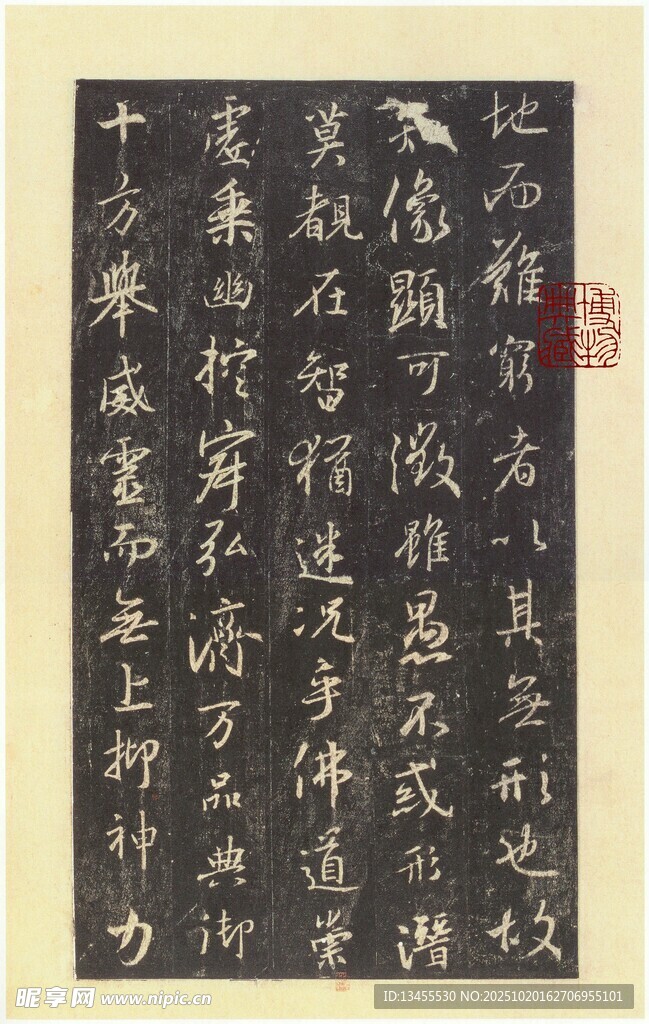 地而難窮者以其無形也故
像顯可徵雖愚不惑形潛
莫覩在智猶迷况乎佛道崇
虛乘幽控寂弘濟万品典御
十方舉威靈而無上抑神力
博物典藏
昵享网 www.nipic.cn
ID:13455530 NO:20251020162706955101